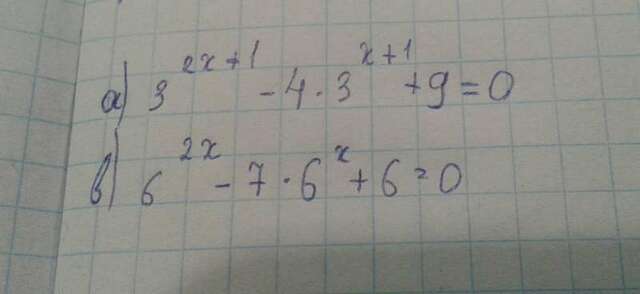 а) 3^{2x+1} - 4 · 3^{x+1} + 9 = 0
в) 6^{2x} - 7 · 6^{x} + 6 = 0